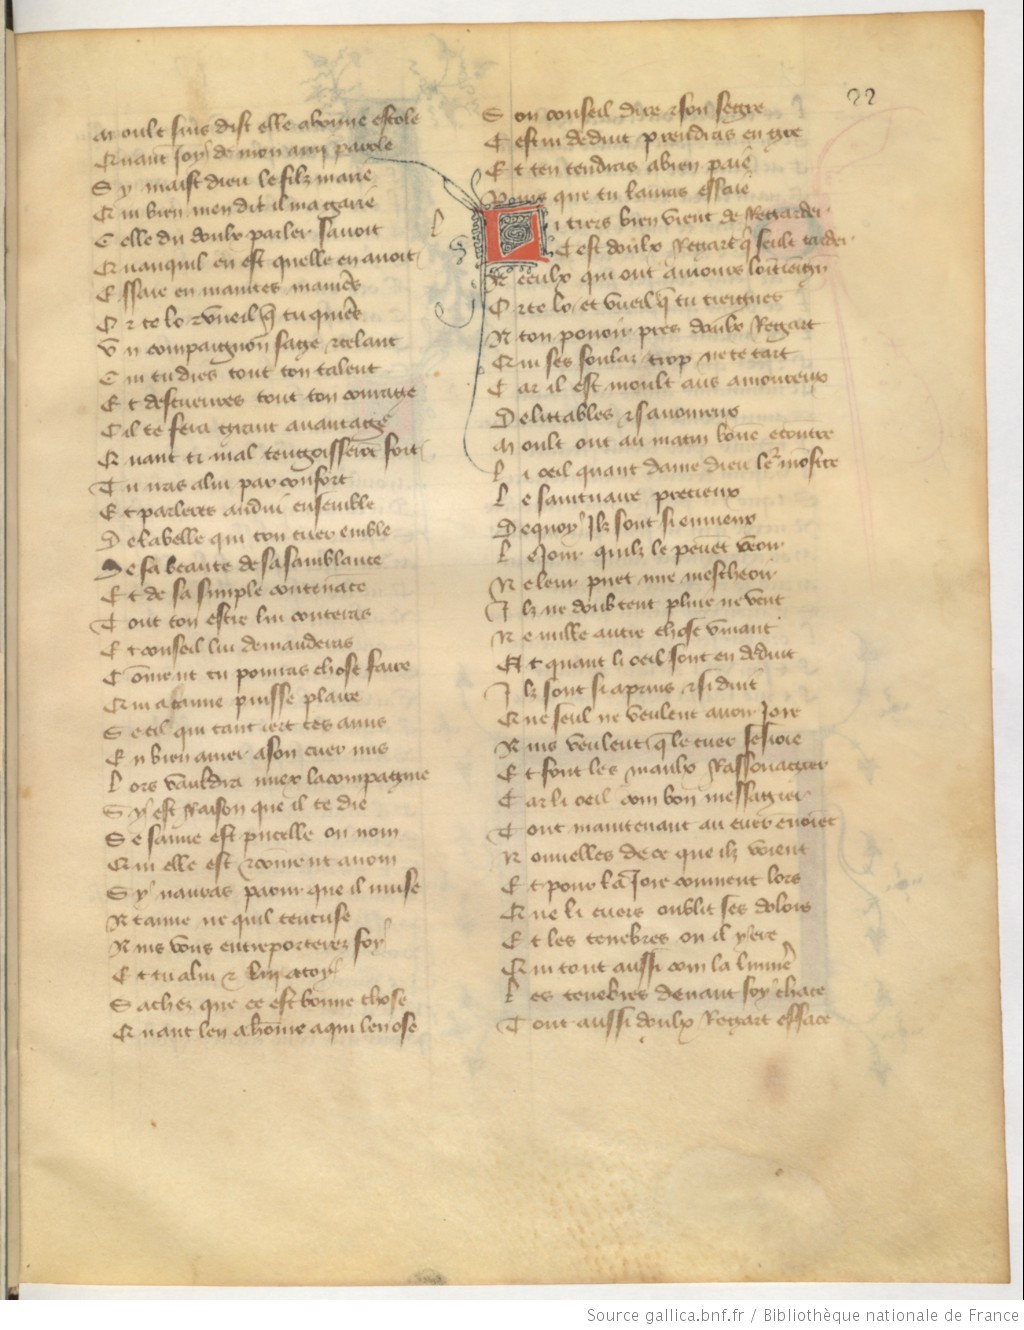 22
Moult suis dist elle a bonne escole
Quant joy de mon amy parole
Sy maist dieu le filz marie
Qui bien men dit il ma garie
Celle du doulx parler savoit
Quanquil en est quelle en avoit
Essaie en maintes manieres
Or te lo et vueil que tu quieres
Un compaignon sage et celant
Cui tu dies tout ton talent
Et descueuvres tout ton courage
Cil te fera grant avantage
Quant ti mal tengoisseront fort
Tu iras a lui par confort
Et parleres andui ensemble
De la belle qui ton cuer emble
De sa beaute de sa samblance
Et de sa simple contenance
Tout ton estre lui conteras
Et conseil lui demanderas
Comment tu pourras chose faire
Qui a ta mie puisse plaire
Se cil qui tant iert tes amis
En bien amer a son cuer mis
Lors vauldra miex la compagnie
Sy est raison que il te die
Se samie est pucelle ou nom
Qui elle est et comment a nom
Sy nauras paour que il muse
A tamie ne quil tencuse
Ains vous entreporterez foy
Et tu a lui et lui a toy
Saches que ce est bonne chose
Quant len a homme a qui len ose
Son conseil dire et son segre
Cest in deduit prendras en gre
Et ten tendras a bien paie
Pours que tu lauras essaie
l
Li tiers bien vient de Regarder
Cest doulx Regart qui seult tarder
A ceulx qui ont amours lointeign
Or te lo et vueil que tu tieignes
A ton pouoir pres doulx Regart
Qui ses soulaz trop ne te tart
Car il est moult aus amoureux
Delittables et savoureus
Moult ont au matin bone econtre
Li oeil quant dame dieu leur monstre
Le saintuaire precieux
De quoy ilz sont si envieux
Le jour quilz le peuent veoir
Ne leur puet mie mescheoir
Ilz ne doubtent pluie ne vent
Ne nulle autre chose vivant
Et quant li oeil sont en deduit
Ilz sont si apris et si duit
Que seul ne veulent avoir joie
Ains veulent que le cuer sesjoie
Et font les maulx rassouagier
Car li oeil com bon messagier
Tout maintenant au cuer envoiet
Nouvelles de ce que ilz voient
Et pour la joie convient lors
Que li cuers oublit ses dolors
Et les tenebres ou il yere
Qui tout aussi com la lumiere
Les tenebres devant soy chace
Tout aussi doulx Regart efface
Source gallica.bnf.fr / Bibliothèque nationale de France